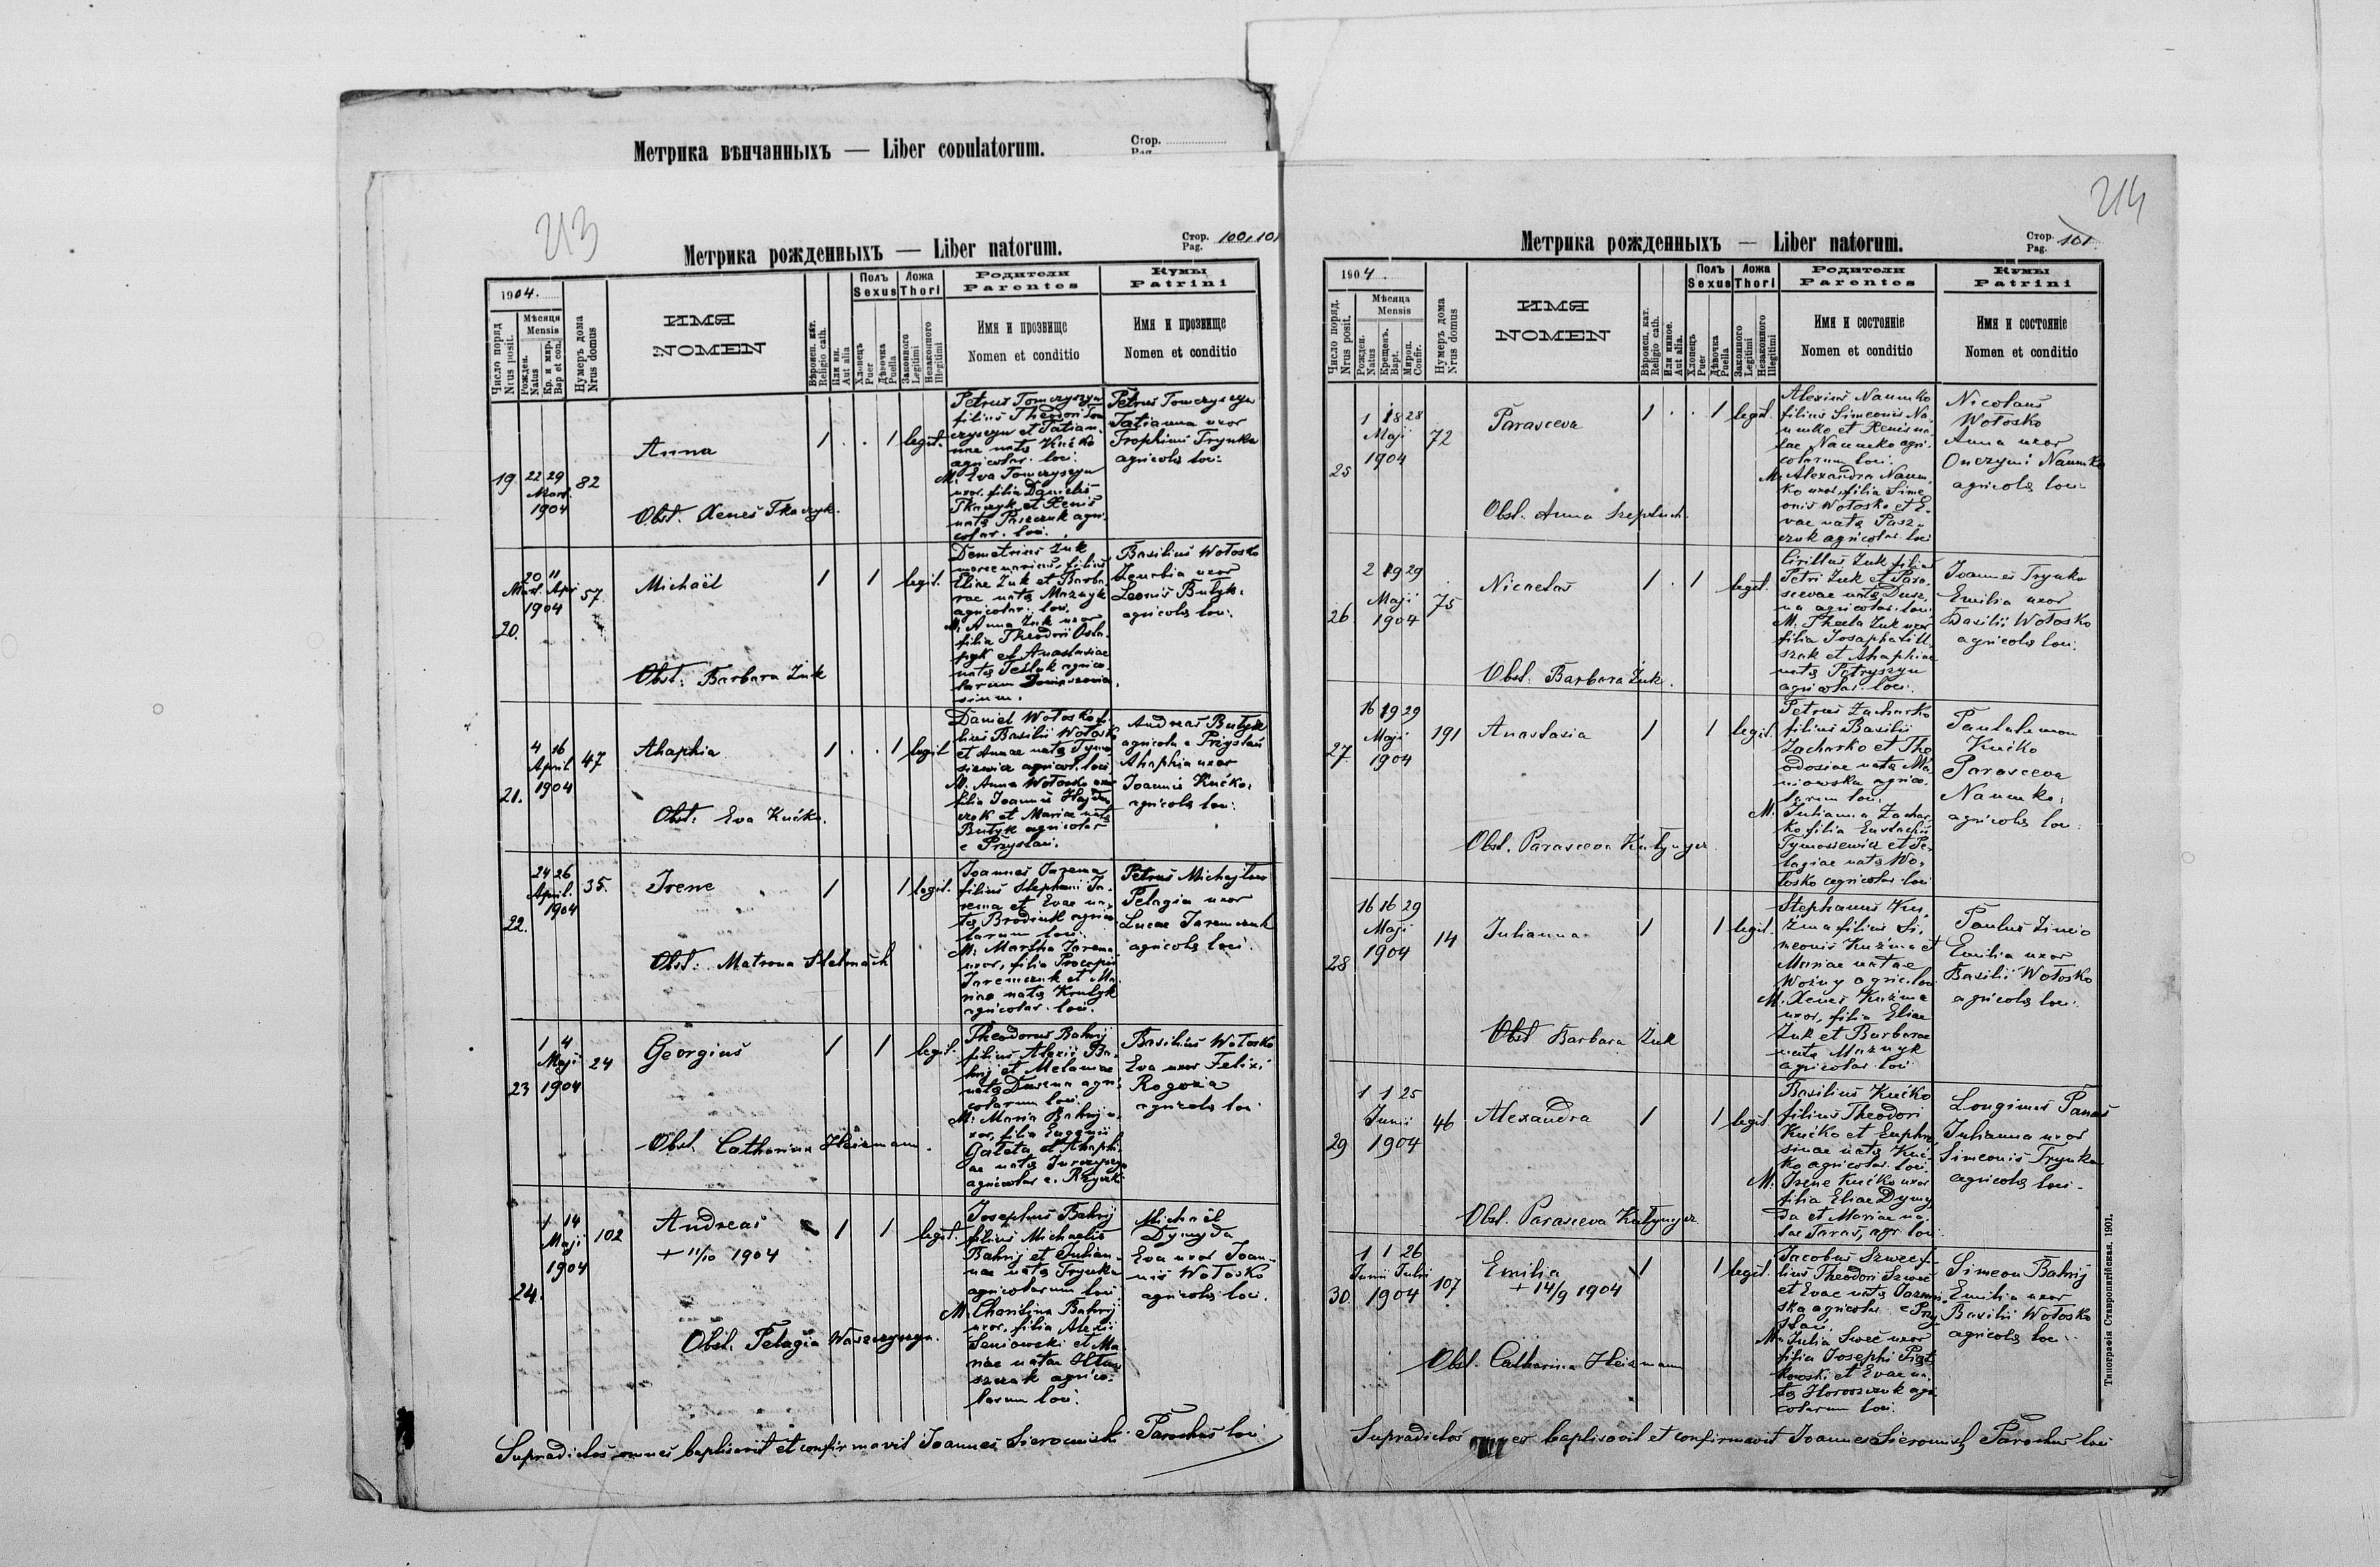 Метрика вѣнчанныхъ — Liber copulatorum.
Стор.
Pag.
213
Метрика рожденныхъ — Liber natorum.
Стор.
Pag. 100, 101
1904.
Число поряд.
Nrus posit.
Мѣсяця
Mensis
Рожден.
Natus
Кр. и мир.
Bap et con.
Нумеръ дома
Nrus domus
ИМЯ
NOMEN
Вѣроисп. кат.
Religio cath.
Или ин.
Aut alia
Полъ
Sexus
Хлопецъ
Puer
Дѣвочка
Puella
Ложа
Thori
Законного
Legitimi
Незаконного
Illegitimi
Родители
Parentes
Имя и прозвище
Nomen et conditio
Кумы
Patrini
Имя и прозвище
Nomen et conditio
19
22 29
Mart.
1904
82
Anna
Obst. Xenes Tkaczyk.
1 . . 1 legit.
Petrus Tomczyszyn
filius Theodori Tom
czyszyn et Tatian-
nae natę Kućko
agricolar. loci.
M. Eva Tomczyszyn
uxor, filia Danielis
Tkaczyk et Xeniś
natę Paszczuk agri-
colar. loci.
Petrus Tomczyszyn
Tatianna uxor
Trophimi Trynka
agricolę loci.
20.
20 11
Mart. Apr
1904
57
Michaël
Obst. Barbara Żuk
1 1 legit.
Demetrius Żuk
mercenarius, filius
Eliae Żuk et Barba-
rae natę Maznyk
agricolar. loci.
M. Anna Żuk uxor
filia Theodori Osta-
pyk et Anastasiae
natę Tesluk agrico-
larum
Basilius Wołosko
Zenobia uxor
Leonis Butyk.
agricolę loci.
21.
4 16
April
1904
47
Ahaphia
Obst. Eva Kućko.
1 . . 1 legit
Daniel Wołosko fi-
lius Basilii Wołosko
et Annae natę Tymo-
siewicz agricol. loci
M. Anna Wołosko uxor
filia Joannis Hajdu
czok et Mariae natę
Butyk agricolar
e Przysłań.
Andreas Butyk
agricola e Przysłań
Ahaphia uxor
Joannis Kućko,
agricolę loci.
22.
24 26
April.
1904
35.
Irene
Obst. Matrona Stelmach
1 1 legit.
Joannes Jarema
filius Stephani Ja-
rema et Evae na-
tę Brodiuk agrico-
larum loci.
M. Martha Jarema
uxor, filia Procopii
Jaremczuk et Ma-
riae natę Krulyk
agricolar. loci.
Petrus Michajłow
Pelagia uxor
Lucae Jaremczuk
agricolę loci.
23
1 4
Maji
1904
24
Georgius
Obst. Catharina Heizmann.
1 1 legit.
Theodorus Bahrij
filius Alexii Ba-
hrij et Melaniae
natę Duszna agri-
colarum loci.
M. Maria Bahrij u-
xor, filia Eugenii
Galeta et Ahaphi-
ae natę Jurczyszyn
agricolar e. Rzyczki
Basilius Wołosko
Eva uxor Felixi
Rogozia
agricolę loci
24.
1 14
Maji
1904
102
Andreas
+ 11/10 1904
Obst. Pelagia Waszczyszyn.
1 1 legit.
Josephus Bahrij
filius Michaelis
Bahrij et Julian-
nae natę Trynka
agricolarum loci
M. Charitina Bahrij
uxor, filia Alexii
Seniowski et Ma-
riae natae
agrico-
larum loci.
Michaël
Dymyda
Eva uxor Joan-
nis Wołosko
agricolę loci.
Supradictos omnes baptisavit et confirmavit Joannes Sieromiski Parochus loci
214
Метрика рожденныхъ — Liber natorum.
Стор.
Pag. 101
1904
Число поряд.
Nrus posit.
Мѣсяца
Mensis
Рожден.
Natus
Крыщенъ.
Bapt.
Миров.
Confir.
Нумеръ дома
Nrus domus
ИМЯ
NOMEN
Вѣроисп. кат.
Religio cath.
Или иное.
Aut alia.
Полъ
Sexus
Хлопецъ
Puer
Дѣвочка
Puella
Ложа
Thori
Законного
Legitimi
Незаконного
Illegitimi
Родители
Parentes
Имя и состоянiе
Nomen et conditio
Кумы
Patrini
Имя и состоянiе
Nomen et conditio
25
1 18 28
Maji
1904
72
Parasceva
Obst. Anna Szeptuch.
1 . . 1 legit.
Alexius Naumko
filius Simeonis Na-
umko et Xenis na-
tae Naumko agri-
colarum loci.
M. Alexandra Naum-
ko uxor, filia Sime-
onis Wołosko et E-
vae natę Pasz-
czuk agricolar. loci
Nicolaus
Wołosko
Anna uxor
Onczymi Naumko
agricolę loci.
26
2 19 29
Maji
1904
75
Nicaelas
Obst. Barbara Żuk.
1 . 1 legit.
Cirillus Żuk filius
Petri Żuk et Para-
scevae natę Dusz-
na agricolar. loci.
M. Thecla Żuk uxor
filia Josaphati
et Ahaphiae
natę Petryszyn
agricolar. loci.
Joannes Trynka
Emilia uxor
Basilii Wołosko
agricolę loci.
27
16 19 29
Maji
1904
191
Anastasia
Obst. Parasceva Kutynycz.
1 1 legit.
Petrus Zacharko
filius Basilii
Zacharko et The
odosiae natę
agrico-
larum loci.
M. Julianna Zachar-
ko filia Eustachii
Tymosiewicz et Pe-
lagiae natę Wo-
łosko agricolar. loci
Pantalemon
Kućko
Parasceva
Naumko,
agricolę loci.
28
16 16 29
Maji
1904
14
Julianna
Obst Barbara Żuk
1 1 legit.
Stephanus Ku-
źma filius Si-
meonis Kuźma et
Mariae natae
Woźny agric. loci
M. Xenes Kuźma
uxor, filia Eliae
Żuk et Barbarae
natę Maznyk
agricolar. loci
Paulus Zincio
Emilia uxor
Basilii Wołosko
agricolę loci.
29
1 1 25
Junii
1904
46
Alexandra
Obst. Parasceva Kutynycz.
1 1 legit.
Basilius Kućko
filius Theodori
Kućko et Euphro-
sinae natę Kuć-
ko agricolar. loci.
M. Irene Kućko uxor
filia Eliae Dymy
da et Mariae na-
tae Taras, agr. loci
Longinus Panas
Julianna uxor
Simeonis Trynka
agricolę loci.
30
1 1 26
Junii Julii
1904
107
Emilia
+ 14/9 1904
Obst. Catharina Heizmann
1 1 legit.
Jacobus Szwec fi-
lius Theodori Szwec
et Evae natę
agricolar. e Przy-
słań.
M. Julia Swec uxor
filia Josephi Piąt-
kowski et Evae na-
tę Horoszczuk agri
colarum loci.
Simeon Bahrij
Emilia uxor
Basilii Wołosko
agricolę loci.
Supradictos omnes baptisavit et confirmavit Joannes Sieromisky Parochus loci
Типографiя Ставропигiйская. 1901.